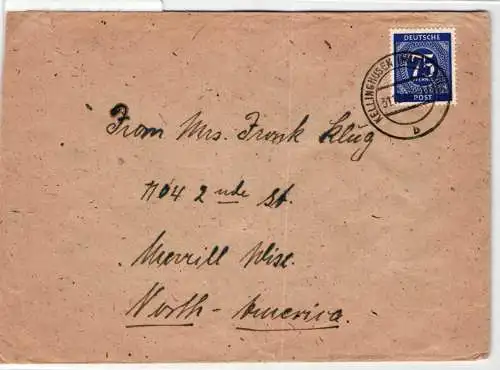 DEUTSCHE
75
POST
KELLINGHUSEN
31
b
From Mrs. Frank Klug
1104 2 nde St.
Merrill Wisc.
North-America.